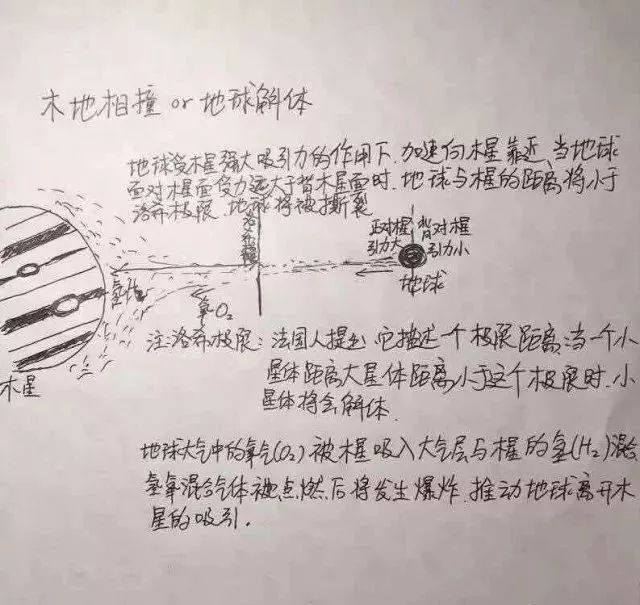 木地相撞 or 地球解体
地球受木星强大吸引力的作用下,加速向木星靠近,当地球
面对木星面受力远大于背木星面时.地球与木星的距离将小于
洛希极限.地球将被撕裂
洛希极限
正对木星 背对木星
引力大 引力小
氢H₂
氧O₂
地球
木星
注:洛希极限:法国人提出,它描述一个极限距离:当一个小
星体距离大星体距离小于这个极限时.小
星体将会解体.
地球大气中的氧气(O₂)被木星吸入大气层与木星的氢(H₂)混合
氢氧混合气体被点燃后将发生爆炸.推动地球离开木
星的吸引.